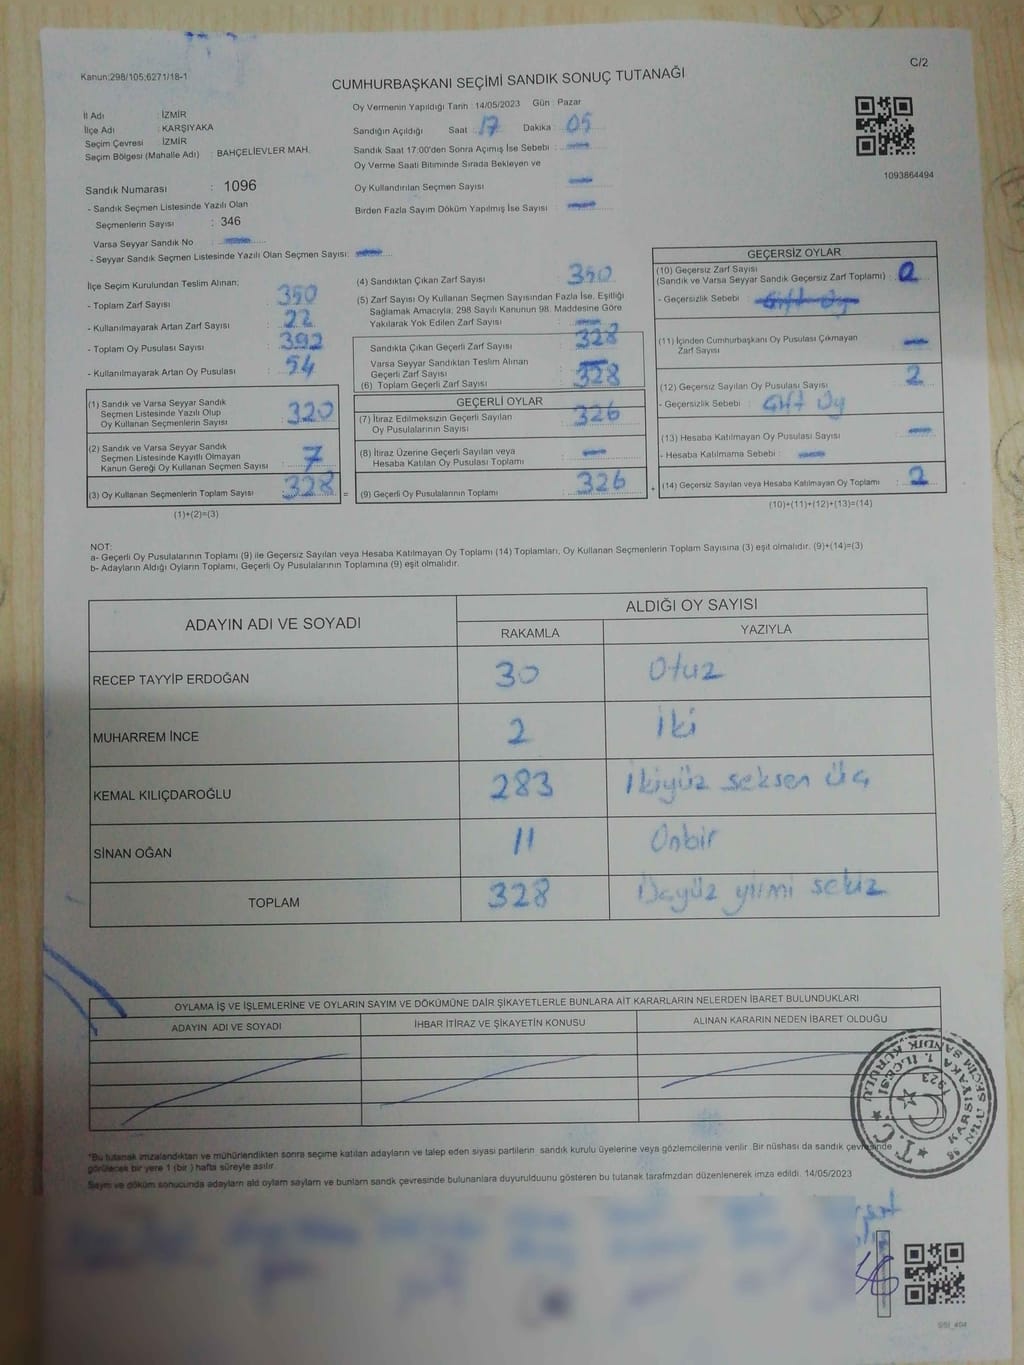 Kanun:298/105;6271/18-1
C/2
CUMHURBAŞKANI SEÇİMİ SANDIK SONUÇ TUTANAĞI
İl Adı : İZMİR
İlçe Adı : KARŞIYAKA
Seçim Çevresi İZMİR
Seçim Bölgesi (Mahalle Adı) : BAHÇELİEVLER MAH.
Sandık Numarası : 1096
- Sandık Seçmen Listesinde Yazılı Olan
Seçmenlerin Sayısı : 346
Varsa Seyyar Sandık No :
- Seyyar Sandık Seçmen Listesinde Yazılı Olan Seçmen Sayısı:
Oy Vermenin Yapıldığı Tarih : 14/05/2023 Gün : Pazar
Sandığın Açıldığı Saat : 17 Dakika : 05
Sandık Saat 17:00'den Sonra Açımış İse Sebebi :
Oy Verme Saati Bitiminde Sırada Bekleyen ve
Oy Kullandırılan Seçmen Sayısı
Birden Fazla Sayım Döküm Yapılmış İse Sayısı :
1093864494
İlçe Seçim Kurulundan Teslim Alınan;
- Toplam Zarf Sayısı : 350
- Kullanılmayarak Artan Zarf Sayısı : 22
- Toplam Oy Pusulası Sayısı : 392
- Kullanılmayarak Artan Oy Pusulası : 54
(1) Sandık ve Varsa Seyyar Sandık
Seçmen Listesinde Yazılı Olup
Oy Kullanan Seçmenlerin Sayısı : 320
(2) Sandık ve Varsa Seyyar Sandık
Seçmen Listesinde Kayıtlı Olmayan
Kanun Gereği Oy Kullanan Seçmen Sayısı : 7
(3) Oy Kullanan Seçmenlerin Toplam Sayısı : 328 =
(1)+(2)=(3)
(4) Sandıktan Çıkan Zarf Sayısı : 350
(5) Zarf Sayısı Oy Kullanan Seçmen Sayısından Fazla İse, Eşitliği
Sağlamak Amacıyla, 298 Sayılı Kanunun 98. Maddesine Göre
Yakılarak Yok Edilen Zarf Sayısı :
Sandıkta Çıkan Geçerli Zarf Sayısı : 328
Varsa Seyyar Sandıktan Teslim Alınan
Geçerli Zarf Sayısı
(6) Toplam Geçerli Zarf Sayısı : 328
GEÇERLİ OYLAR
(7) İtiraz Edilmeksizin Geçerli Sayılan
Oy Pusulalarının Sayısı : 326
(8) İtiraz Üzerine Geçerli Sayılan veya
Hesaba Katılan Oy Pusulası Toplamı :
(9) Geçerli Oy Pusulalarının Toplamı : 326 +
GEÇERSİZ OYLAR
(10) Geçersiz Zarf Sayısı
(Sandık ve Varsa Seyyar Sandık Geçersiz Zarf Toplamı) : 0
- Geçersizlik Sebebi :
(11) İçinden Cumhurbaşkanı Oy Pusulası Çıkmayan
Zarf Sayısı
(12) Geçersiz Sayılan Oy Pusulası Sayısı : 2
- Geçersizlik Sebebi : Çift Oy
(13) Hesaba Katılmayan Oy Pusulası Sayısı :
- Hesaba Katılmama Sebebi :
(14) Geçersiz Sayılan veya Hesaba Katılmayan Oy Toplamı : 2
(10)+(11)+(12)+(13)=(14)
NOT:
a- Geçerli Oy Pusulalarının Toplamı (9) ile Geçersiz Sayılan veya Hesaba Katılmayan Oy Toplamı (14) Toplamları, Oy Kullanan Seçmenlerin Toplam Sayısına (3) eşit olmalıdır. (9)+(14)=(3)
b- Adayların Aldığı Oyların Toplamı, Geçerli Oy Pusulalarının Toplamına (9) eşit olmalıdır.
ADAYIN ADI VE SOYADI
ALDIĞI OY SAYISI
RAKAMLA YAZIYLA
RECEP TAYYİP ERDOĞAN 30 Otuz
MUHARREM İNCE 2 İki
KEMAL KILIÇDAROĞLU 283 İkiyüz seksen üç
SİNAN OĞAN 11 Onbir
TOPLAM 328 Üçyüz yirmi sekiz
OYLAMA İŞ VE İŞLEMLERİNE VE OYLARIN SAYIM VE DÖKÜMÜNE DAİR ŞİKAYETLERLE BUNLARA AİT KARARLARIN NELERDEN İBARET BULUNDUKLARI
ADAYIN ADI VE SOYADI İHBAR İTİRAZ VE ŞİKAYETİN KONUSU ALINAN KARARIN NEDEN İBARET OLDUĞU
*Bu tutanak imzalandıktan ve mühürlendikten sonra seçime katılan adayların ve talep eden siyasi partilerin sandık kurulu üyelerine veya gözlemcilerine verilir. Bir nüshası da sandık çevresinde
görülecek bir yere 1 (bir ) hafta süreyle asılır.
Sayım ve döküm sonucunda adayların ald oyların sayların ve bunların sandk çevresinde bulunanlara duyurulduunu gösteren bu tutanak tarafmzdan düzenlenerek imza edildi. 14/05/2023
T.C.
KARŞIYAKA 1. İLÇESİ
SANDIK KURULU
1923
SSİ_404